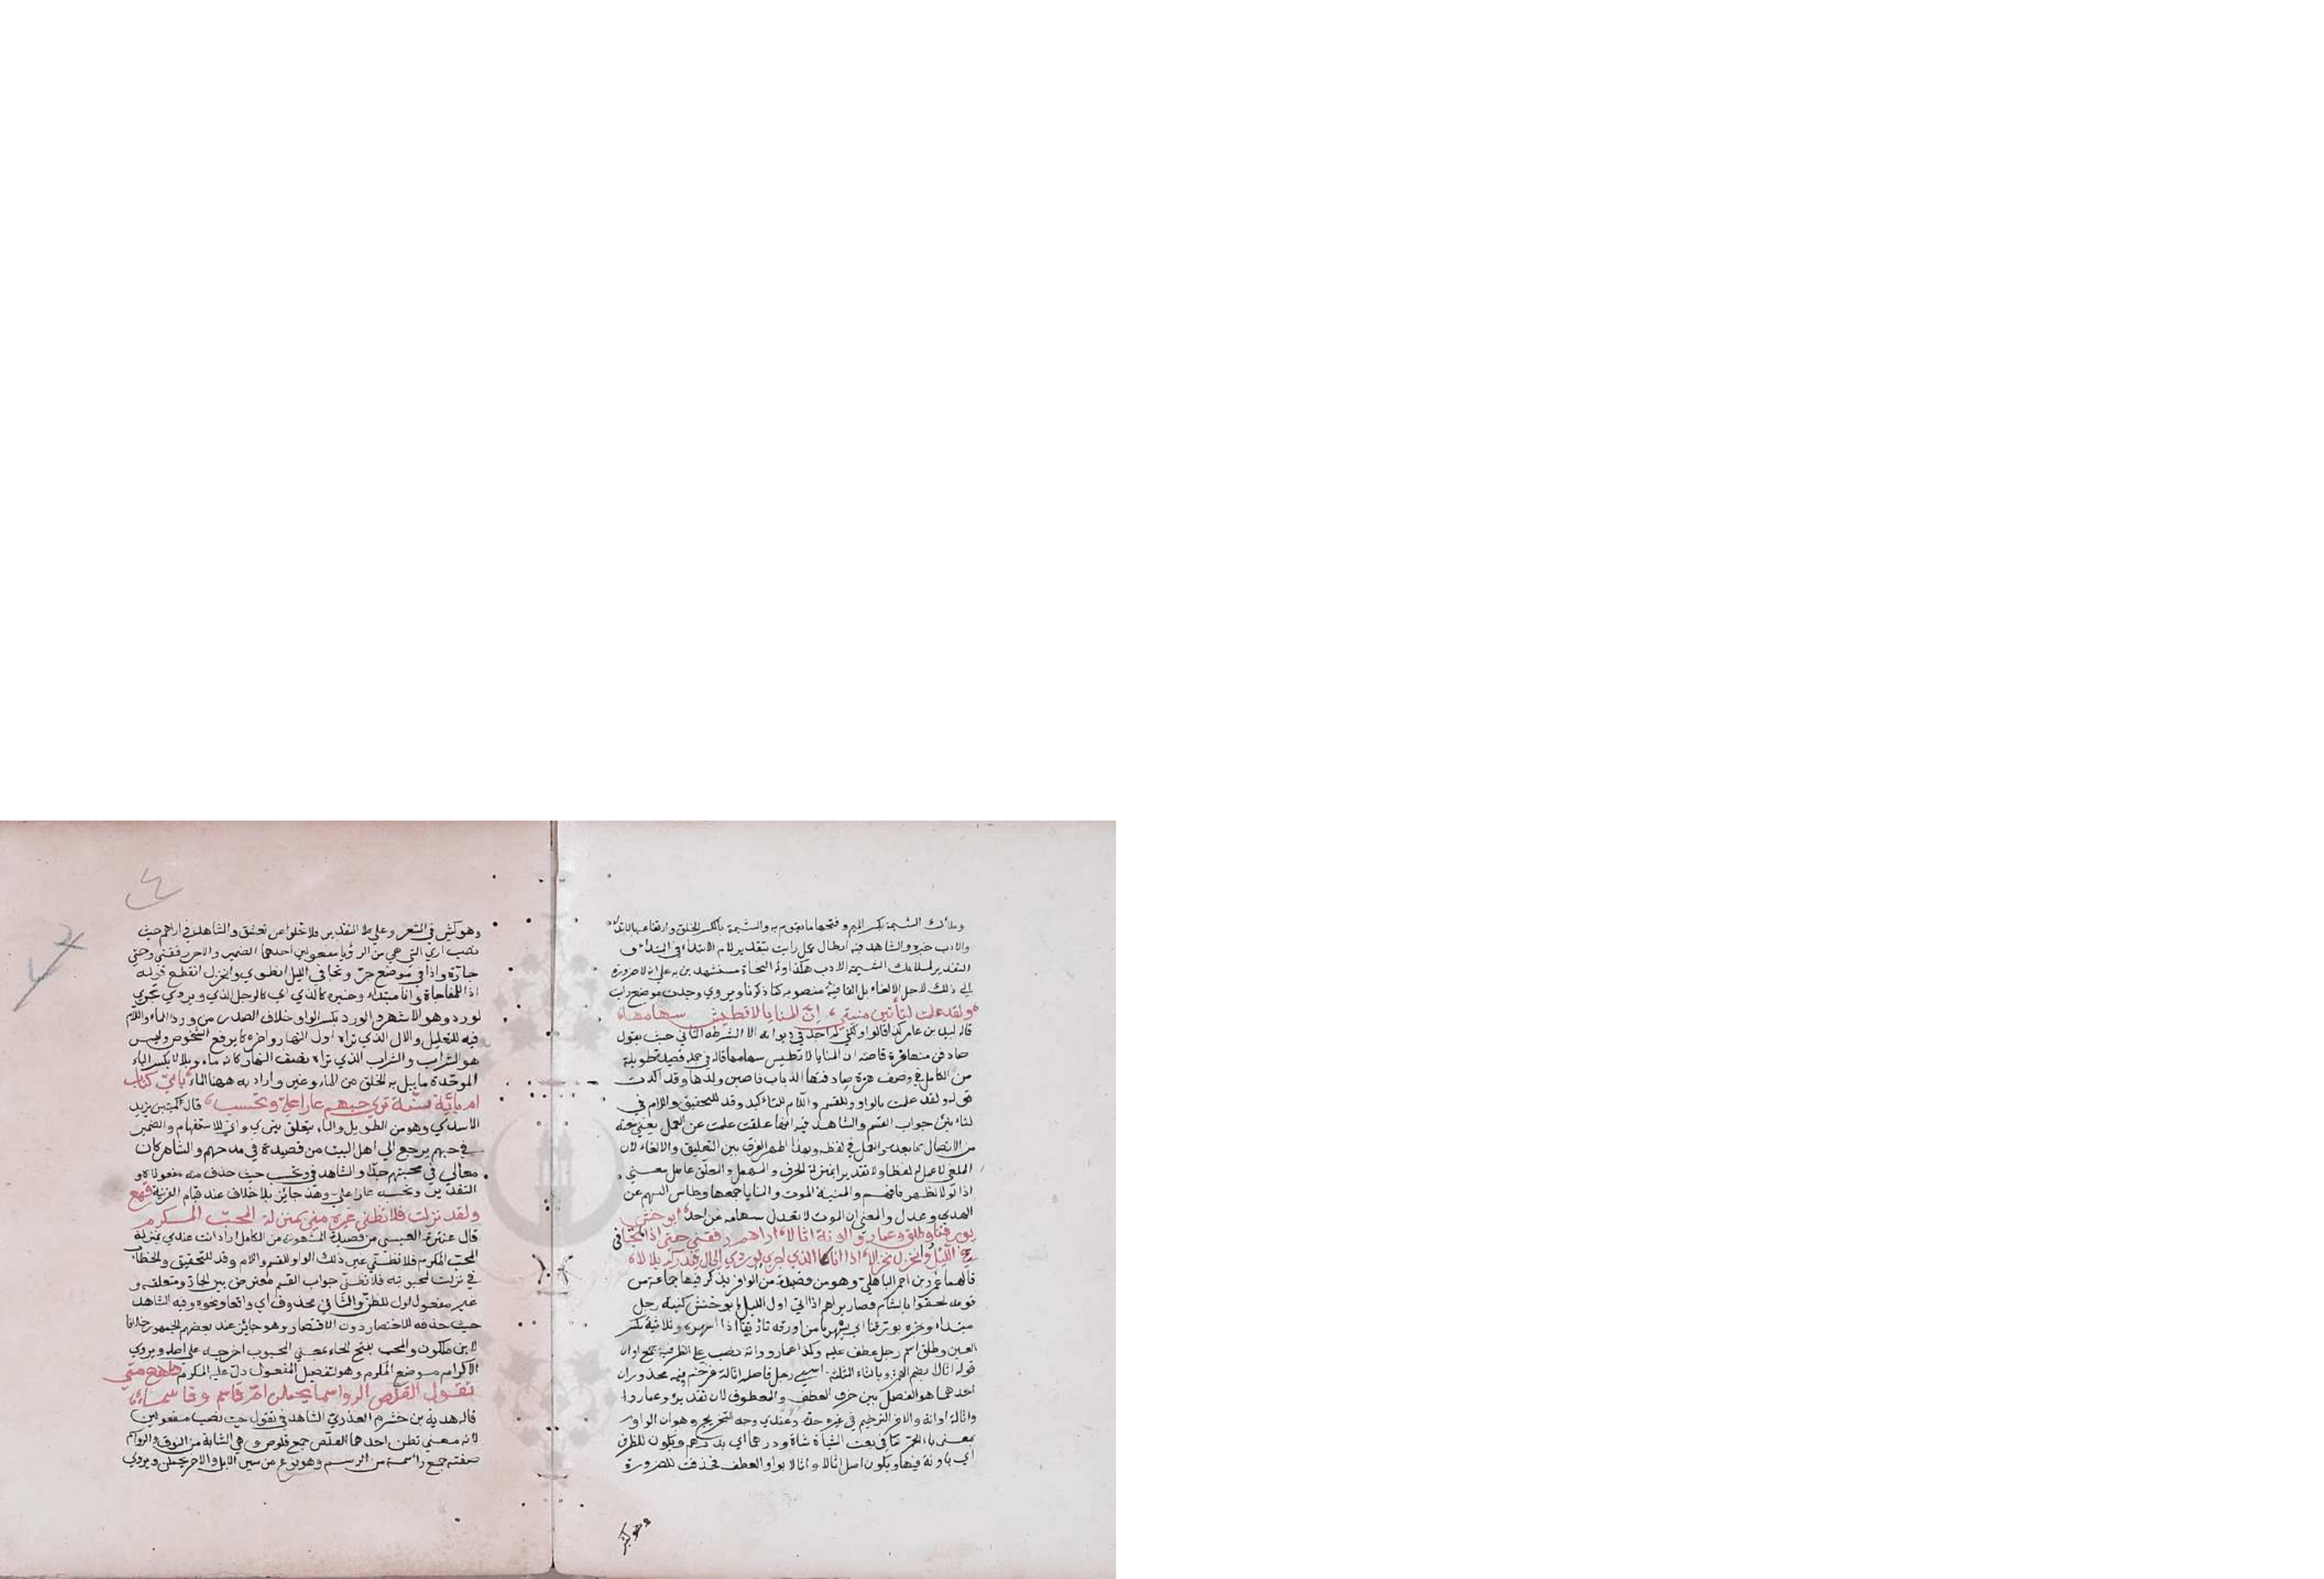 وملاك الشيمة بكسر الميم وفتحها ما يقوم به والشيمة بالكسر الخلق وارتفاعها بالابتداء
والادب خبره والشاهد فيه ابطال عمل رايت بتقدير لام الابتداء في المبتداء و
التقدير لملاك الشيمة الادب هكذا اوله النحاة مستشهدين به على ان لا ضرورة
الى ذلك لاجل الالغاء بل القافية منصوبة كما ذكرنا ويروي وجدت موضع رايت
ولقد علمت لتأتين منيتي ان المنايا لا تطيش سهامها
قاله لبيد بن عامر كذا قالوا ولكني لم اجد في ديوانه الا الشرطه الثاني حيث يقول
صادفن منها غرة فاصبنه ان المنايا لا تطيش سهامها قاله في جملة قصيدة طويلة
من الكامل في وصف هرة صادفتها الذياب فاصبن ولدها وقد اكدت
قوله ولقد علمت بالواو وللقسم واللام للتاكيد وقد للتحقيق واللام في
لتاءتين جواب القسم والشاهد فيه انها علقت علمت عن العمل يعني منعته
من الاتصال بما بعدها والعمل في لفظه وبهذا ظهر الفرق بين التعليق والالغاء لان
الملغى لا عمل له لفظا ولا تقديرا بمنزلة الحرف والمهمل والمعلق عامل معنى و
اذا تولا نظهر فافهم والمنية الموت والمنايا جمعها وطاش السهم عن
الهدي وعدل والمعنى ان الموت لا تعدل سهامه عن احد ابو حنش
يورقنا وطلق وعمار واونة اثالا اراهم رفقتي حتى اذا ما تجافى
الليل وانخزل انخزالا اذا انا كالذي اجرى لورد الى ال فلم يدرك بلالا
قالهما عمرو بن احمر الباهلي وهو من قصيدة من الوافر يذكر فيها جماعة من
قومه لحقوا بالشام فصار يراهم اذا اتى اول الليل وابو حنش كنية رجل
مبتداء وخبره يورقنا اي يسهرنا من ارقه تاريقا اذا اسهره وثلاثية بكسر
العين وطلق اسم رجل عطف عليه وكذا عمار واونة نصب على الظرفية جمع اوان
قوله اثالا بضم الهمزة وبالثاء المثلثة اسم رجل فاصله اثالة فرخم وفيه محذوران
احدهما هو الفصل بين حرف العطف والمعطوف لان تقديره وعمار و
واثالة اونة والاخر الترخيم في غيره حقه وعندي وجه التخريج وهو ان الواو
بمعنى باء الجر كما في بعت الشاة شاة ودرهما اي بدرهم ويكون للظرف
اي باونة فيها ويكون اصل اثالا واثالا بواو العطف فحذفت للضرورة
وهو كثير
وهو كثير في الشعر وعلى كلا التقديرين فلا تخلوا عن تعسف والشاهد في اراهم حيث
نصب ارى التي هي من الرؤيا مفعولين احدهما الضمير والاخر رفقتي وحتى
جارة واذا في موضع جر وتجافى الليل انطوى وانخزل انقطع قوله
اذا للمفاجاة وانا مبتداء وخبره كالذي اي كالرجل الذي ويروي يجري
لورد وهو الاشهر والورد بكسر الواو خلاف الصدر من ورد الماء واللام
فيه للتعليل والال الذي تراه اول النهار واخره كانه يرفع الشخوص وليس
هو السراب والسراب الذي تراه نصف النهار كانه ماء وبلالا بكسر الباء
الموحدة ما يبل به الحلق من الماء وغيره واراد به ههنا الماء بأي كتاب
ام باية سنة ترى حبهم عارا علي وتحسب قاله كميت بن يزيد
الاسدي وهو من الطويل والباء يتعلق بترى واي للاستفهام والضمير
في حبهم يرجع الى اهل البيت من قصيدة في مدحهم والشاعر كان
معالي في محبتهم جدا والشاهد في وتحسب حيث حذف منه مفعولاه و
التقدير وتحسبه عارا علي وهذا جائز بلا خلاف عند قيام القرينة قهع
ولقد نزلت فلا تظني غيره مني بمنزلة المحب المكرم
قال عنترة العبسي من قصيدة المشهورة من الكامل اراد انت عندي بمنزلة
المحب المكرم فلا تظني غير ذلك الواو للقسم واللام وقد للتحقيق والخطاب
في نزلت لمحبوبته فلا تظني جواب القسم معترض بين الجار ومتعلقه و
غيره مفعول اول للظن والثاني محذوف اي واقعا ونحوه وفيه الشاهد
حيث حذفه للاختصار دون الاقتصار وهو جائز عند بعضهم للجمهور خلافا
لابن ملكون والمحب بفتح الحاء بمعنى المحبوب اخرجه على اصله ويروي
الاكرام موضع المكرم وهو تفضيل المفعول دل عليه المكرم متى
تقول القلص الرواسما يحملن ام قاسم وقاسما
قاله هدبة بن خشرم العذري الشاهد في تقول حيث نصب مفعولين
لانه بمعنى تظن احدهما القلص جمع قلوص وهي الشابة من النوق والرواسم
صفته جمع راسمة من الرسم وهو نوع من سير الابل والاخر يحملن ويروي